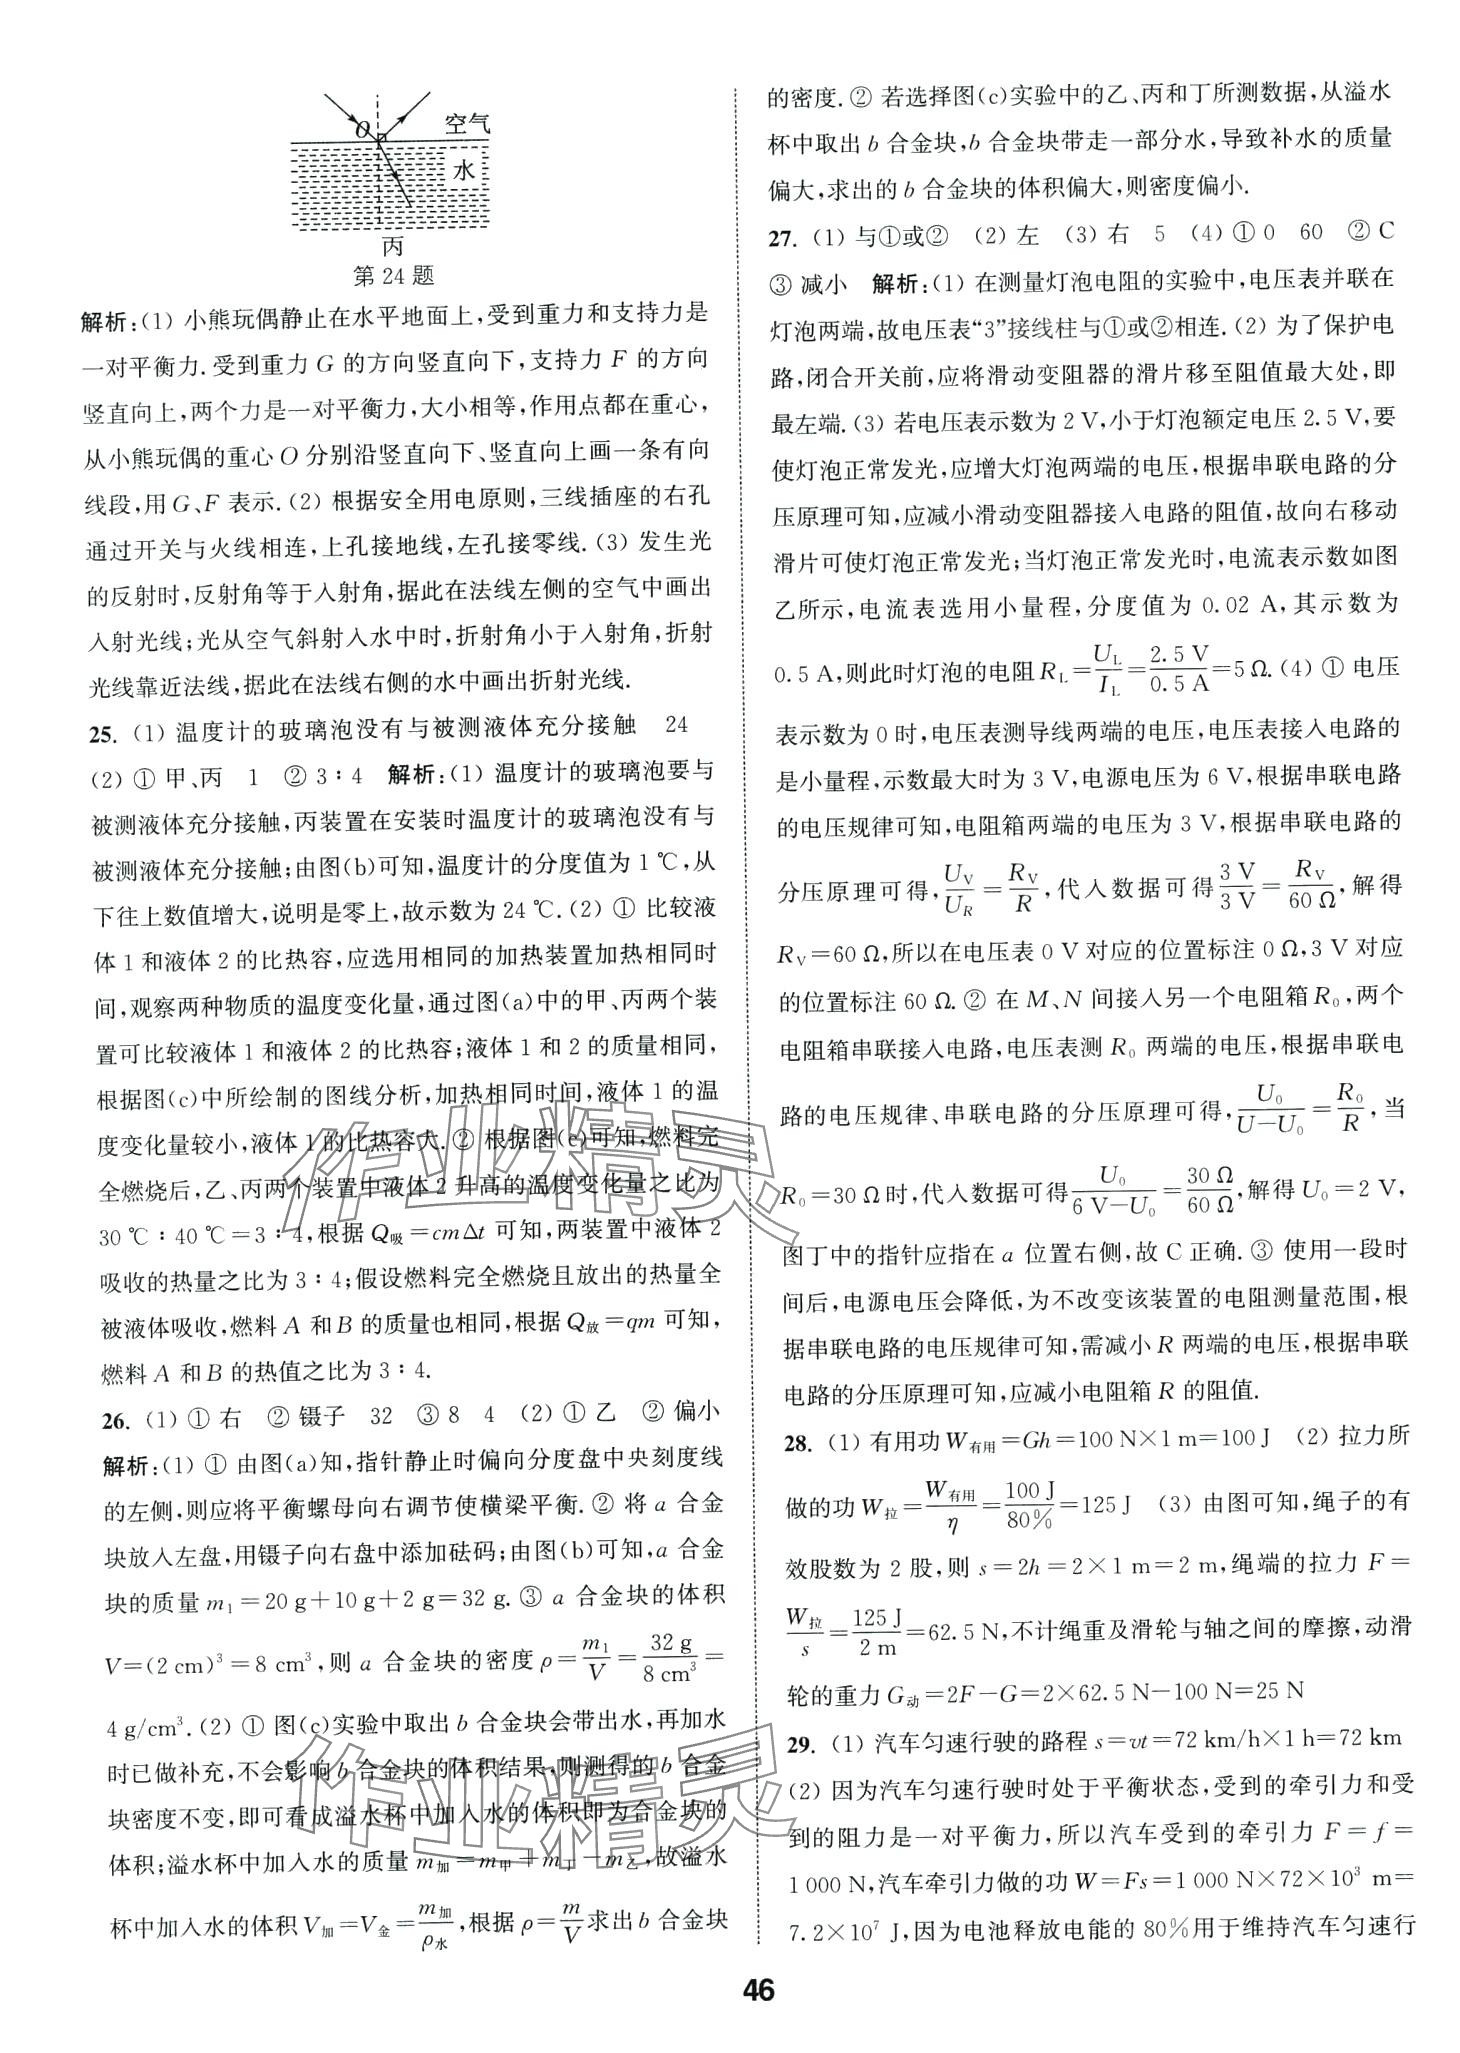 O 空气
水
丙
第24题
解析:(1) 小熊玩偶静止在水平地面上,受到重力和支持力是
一对平衡力.受到重力 G 的方向竖直向下,支持力 F 的方向
竖直向上,两个力是一对平衡力,大小相等,作用点都在重心,
从小熊玩偶的重心 O 分别沿竖直向下、竖直向上画一条有向
线段,用 G、F 表示.(2) 根据安全用电原则,三线插座的右孔
通过开关与火线相连,上孔接地线,左孔接零线.(3) 发生光
的反射时,反射角等于入射角,据此在法线左侧的空气中画出
入射光线;光从空气斜射入水中时,折射角小于入射角,折射
光线靠近法线,据此在法线右侧的水中画出折射光线.
25. (1) 温度计的玻璃泡没有与被测液体充分接触 24
(2) ① 甲、丙 1 ② 3∶4 解析:(1) 温度计的玻璃泡要与
被测液体充分接触,丙装置在安装时温度计的玻璃泡没有与
被测液体充分接触;由图(b)可知,温度计的分度值为 1 ℃,从
下往上数值增大,说明是零上,故示数为 24 ℃.(2) ① 比较液
体 1 和液体 2 的比热容,应选用相同的加热装置加热相同时
间,观察两种物质的温度变化量,通过图(a)中的甲、丙两个装
置可比较液体 1 和液体 2 的比热容;液体 1 和 2 的质量相同,
根据图(c)中所绘制的图线分析,加热相同时间,液体 1 的温
度变化量较小,液体 1 的比热容大.② 根据图(c)可知,燃料完
全燃烧后,乙、丙两个装置中液体 2 升高的温度变化量之比为
30 ℃∶40 ℃=3∶4,根据 Q吸=cmΔt 可知,两装置中液体 2
吸收的热量之比为 3∶4;假设燃料完全燃烧且放出的热量全
被液体吸收,燃料 A 和 B 的质量也相同,根据 Q放=qm 可知,
燃料 A 和 B 的热值之比为 3∶4.
26. (1) ① 右 ② 镊子 32 ③ 8 4 (2) ① 乙 ② 偏小
解析:(1) ① 由图(a)知,指针静止时偏向分度盘中央刻度线
的左侧,则应将平衡螺母向右调节使横梁平衡.② 将 a 合金
块放入左盘,用镊子向右盘中添加砝码;由图(b)可知,a 合金
块的质量 m₁=20 g+10 g+2 g=32 g.③ a 合金块的体积
V=(2 cm)³=8 cm³,则 a 合金块的密度 ρ=m₁/V=32 g/8 cm³=
4 g/cm³.(2) ① 图(c)实验中取出 b 合金块会带出水,再加水
时已做补充,不会影响 b 合金块的体积结果,则测得的 b 合金
块密度不变,即可看成溢水杯中加入水的体积即为合金块的
体积;溢水杯中加入水的质量 m加=m甲+m丁−m乙,故溢水
杯中加入水的体积 V加=V金=m加/ρ水,根据 ρ=m/V求出 b 合金块
的密度.② 若选择图(c)实验中的乙、丙和丁所测数据,从溢水
杯中取出 b 合金块,b 合金块带走一部分水,导致补水的质量
偏大,求出的 b 合金块的体积偏大,则密度偏小.
27. (1) 与①或② (2) 左 (3) 右 5 (4) ① 0 60 ② C
③ 减小 解析:(1) 在测量灯泡电阻的实验中,电压表并联在
灯泡两端,故电压表“3”接线柱与①或②相连.(2) 为了保护电
路,闭合开关前,应将滑动变阻器的滑片移至阻值最大处,即
最左端.(3) 若电压表示数为 2 V,小于灯泡额定电压 2.5 V,要
使灯泡正常发光,应增大灯泡两端的电压,根据串联电路的分
压原理可知,应减小滑动变阻器接入电路的阻值,故向右移动
滑片可使灯泡正常发光;当灯泡正常发光时,电流表示数如图
乙所示,电流表选用小量程,分度值为 0.02 A,其示数为
0.5 A,则此时灯泡的电阻 R_L=U_L/I_L=2.5 V/0.5 A=5 Ω.(4) ① 电压
表示数为 0 时,电压表测导线两端的电压,电压表接入电路的
是小量程,示数最大时为 3 V,电源电压为 6 V,根据串联电路
的电压规律可知,电阻箱两端的电压为 3 V,根据串联电路的
分压原理可得,U_V/U_R=R_V/R,代入数据可得 3 V/3 V=R_V/60 Ω,解得
R_V=60 Ω,所以在电压表 0 V 对应的位置标注 0 Ω,3 V 对应
的位置标注 60 Ω.② 在 M、N 间接入另一个电阻箱 R₀,两个
电阻箱串联接入电路,电压表测 R₀ 两端的电压,根据串联电
路的电压规律、串联电路的分压原理可得,U₀/(U−U₀)=R₀/R,当
R₀=30 Ω时,代入数据可得 U₀/(6 V−U₀)=30 Ω/60 Ω,解得 U₀=2 V,
图丁中的指针应指在 a 位置右侧,故 C 正确.③ 使用一段时
间后,电源电压会降低,为不改变该装置的电阻测量范围,根
据串联电路的电压规律可知,需减小 R 两端的电压,根据串联
电路的分压原理可知,应减小电阻箱 R 的阻值.
28. (1) 有用功 W有用=Gh=100 N×1 m=100 J (2) 拉力所
做的功 W拉=W有用/η=100 J/80%=125 J (3) 由图可知,绳子的有
效股数为 2 股,则 s=2h=2×1 m=2 m,绳端的拉力 F=
W拉/s=125 J/2 m=62.5 N,不计绳重及滑轮与轴之间的摩擦,动滑
轮的重力 G动=2F−G=2×62.5 N−100 N=25 N
29. (1) 汽车匀速行驶的路程 s=vt=72 km/h×1 h=72 km
(2) 因为汽车匀速行驶时处于平衡状态,受到的牵引力和受
到的阻力是一对平衡力,所以汽车受到的牵引力 F=f=
1 000 N,汽车牵引力做的功 W=Fs=1 000 N×72×10³ m=
7.2×10⁷ J,因为电池释放电能的 80%用于维持汽车匀速行
作业精灵
作业精灵
46